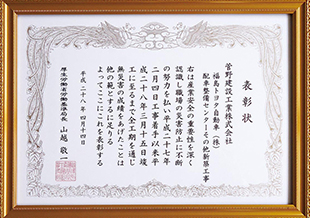 表彰状
菅野建設工業株式会社
福島トヨタ自動車(株)
配車整備センターその他新築工事
右は産業安全の重要性を深く
認識し職場の災害防止に不断
の努力を払い平成二十七年
二月四日工事着手以来平
成二十八年三月十五日竣
工に至るまで全工期を通じ
無災害の成績をあげたことは
他の範とするに足りる
よってここにこれを表彰する
平成二十八年四月十四日
厚生労働省労働基準局長 山越敬一